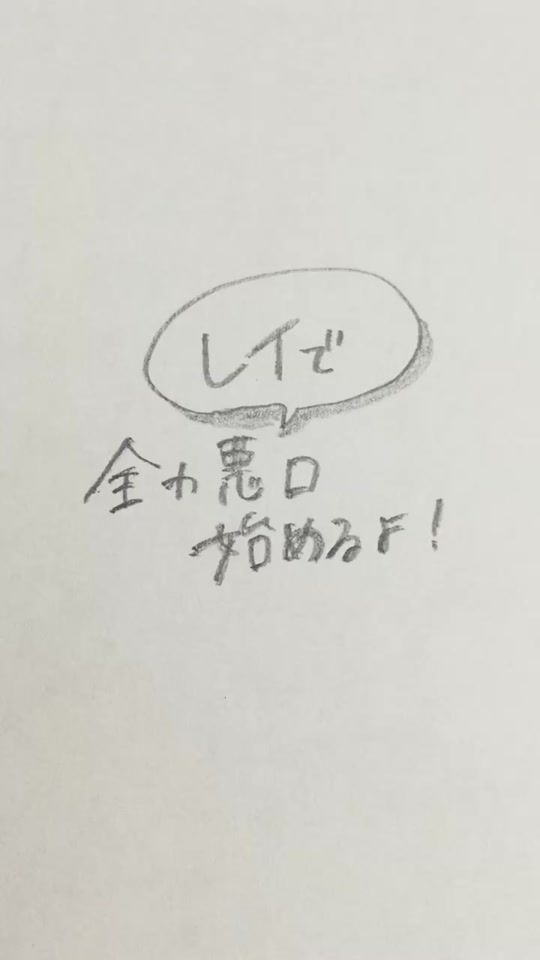 レイで
全力悪口
始めるよ!